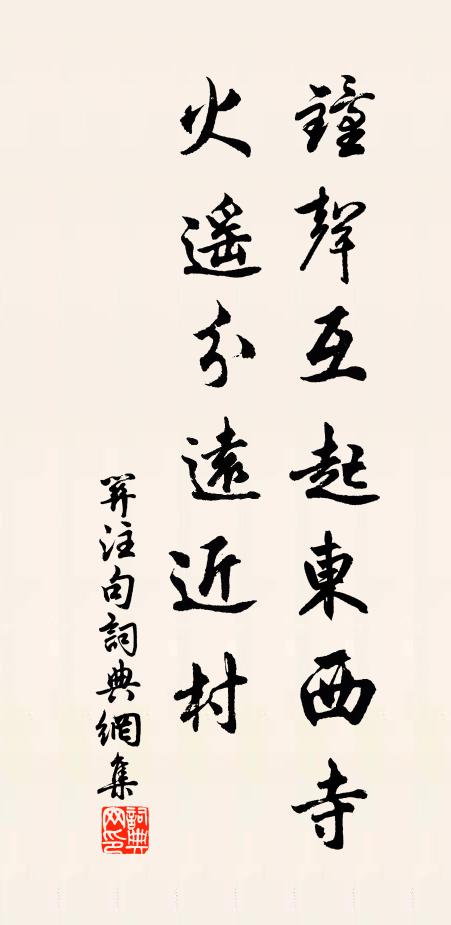 鐘聲互起東西寺
火遙分遠近村
注句詞典網集
詞典网印